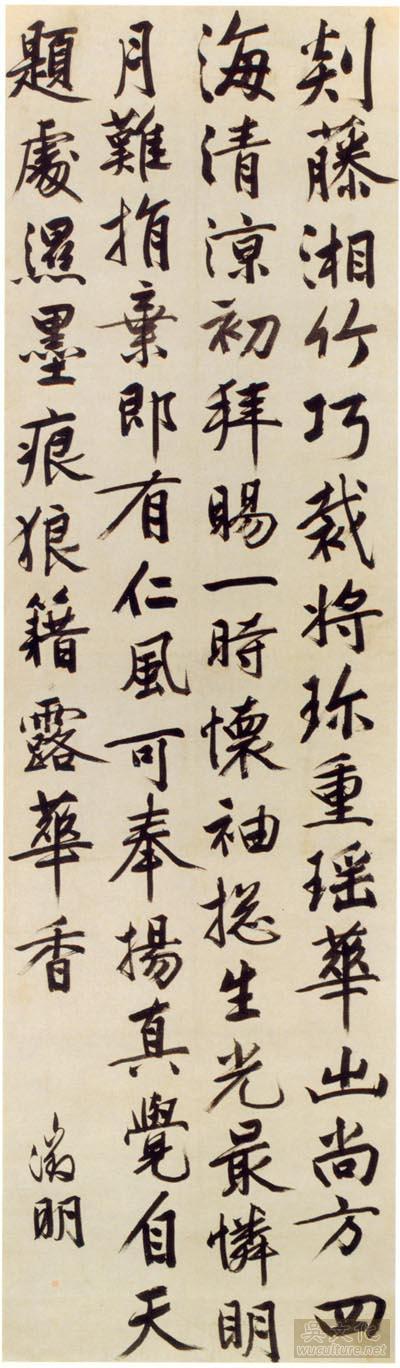 剡藤湘竹巧裁将珎重瑶華出尚方四
海清涼初拜賜一時懷袖捴生光最憐明
月難指棄即有仁風可奉揚真覺自天
題處濕墨痕狼籍露華香
徵明
吳文化
wuculture.net